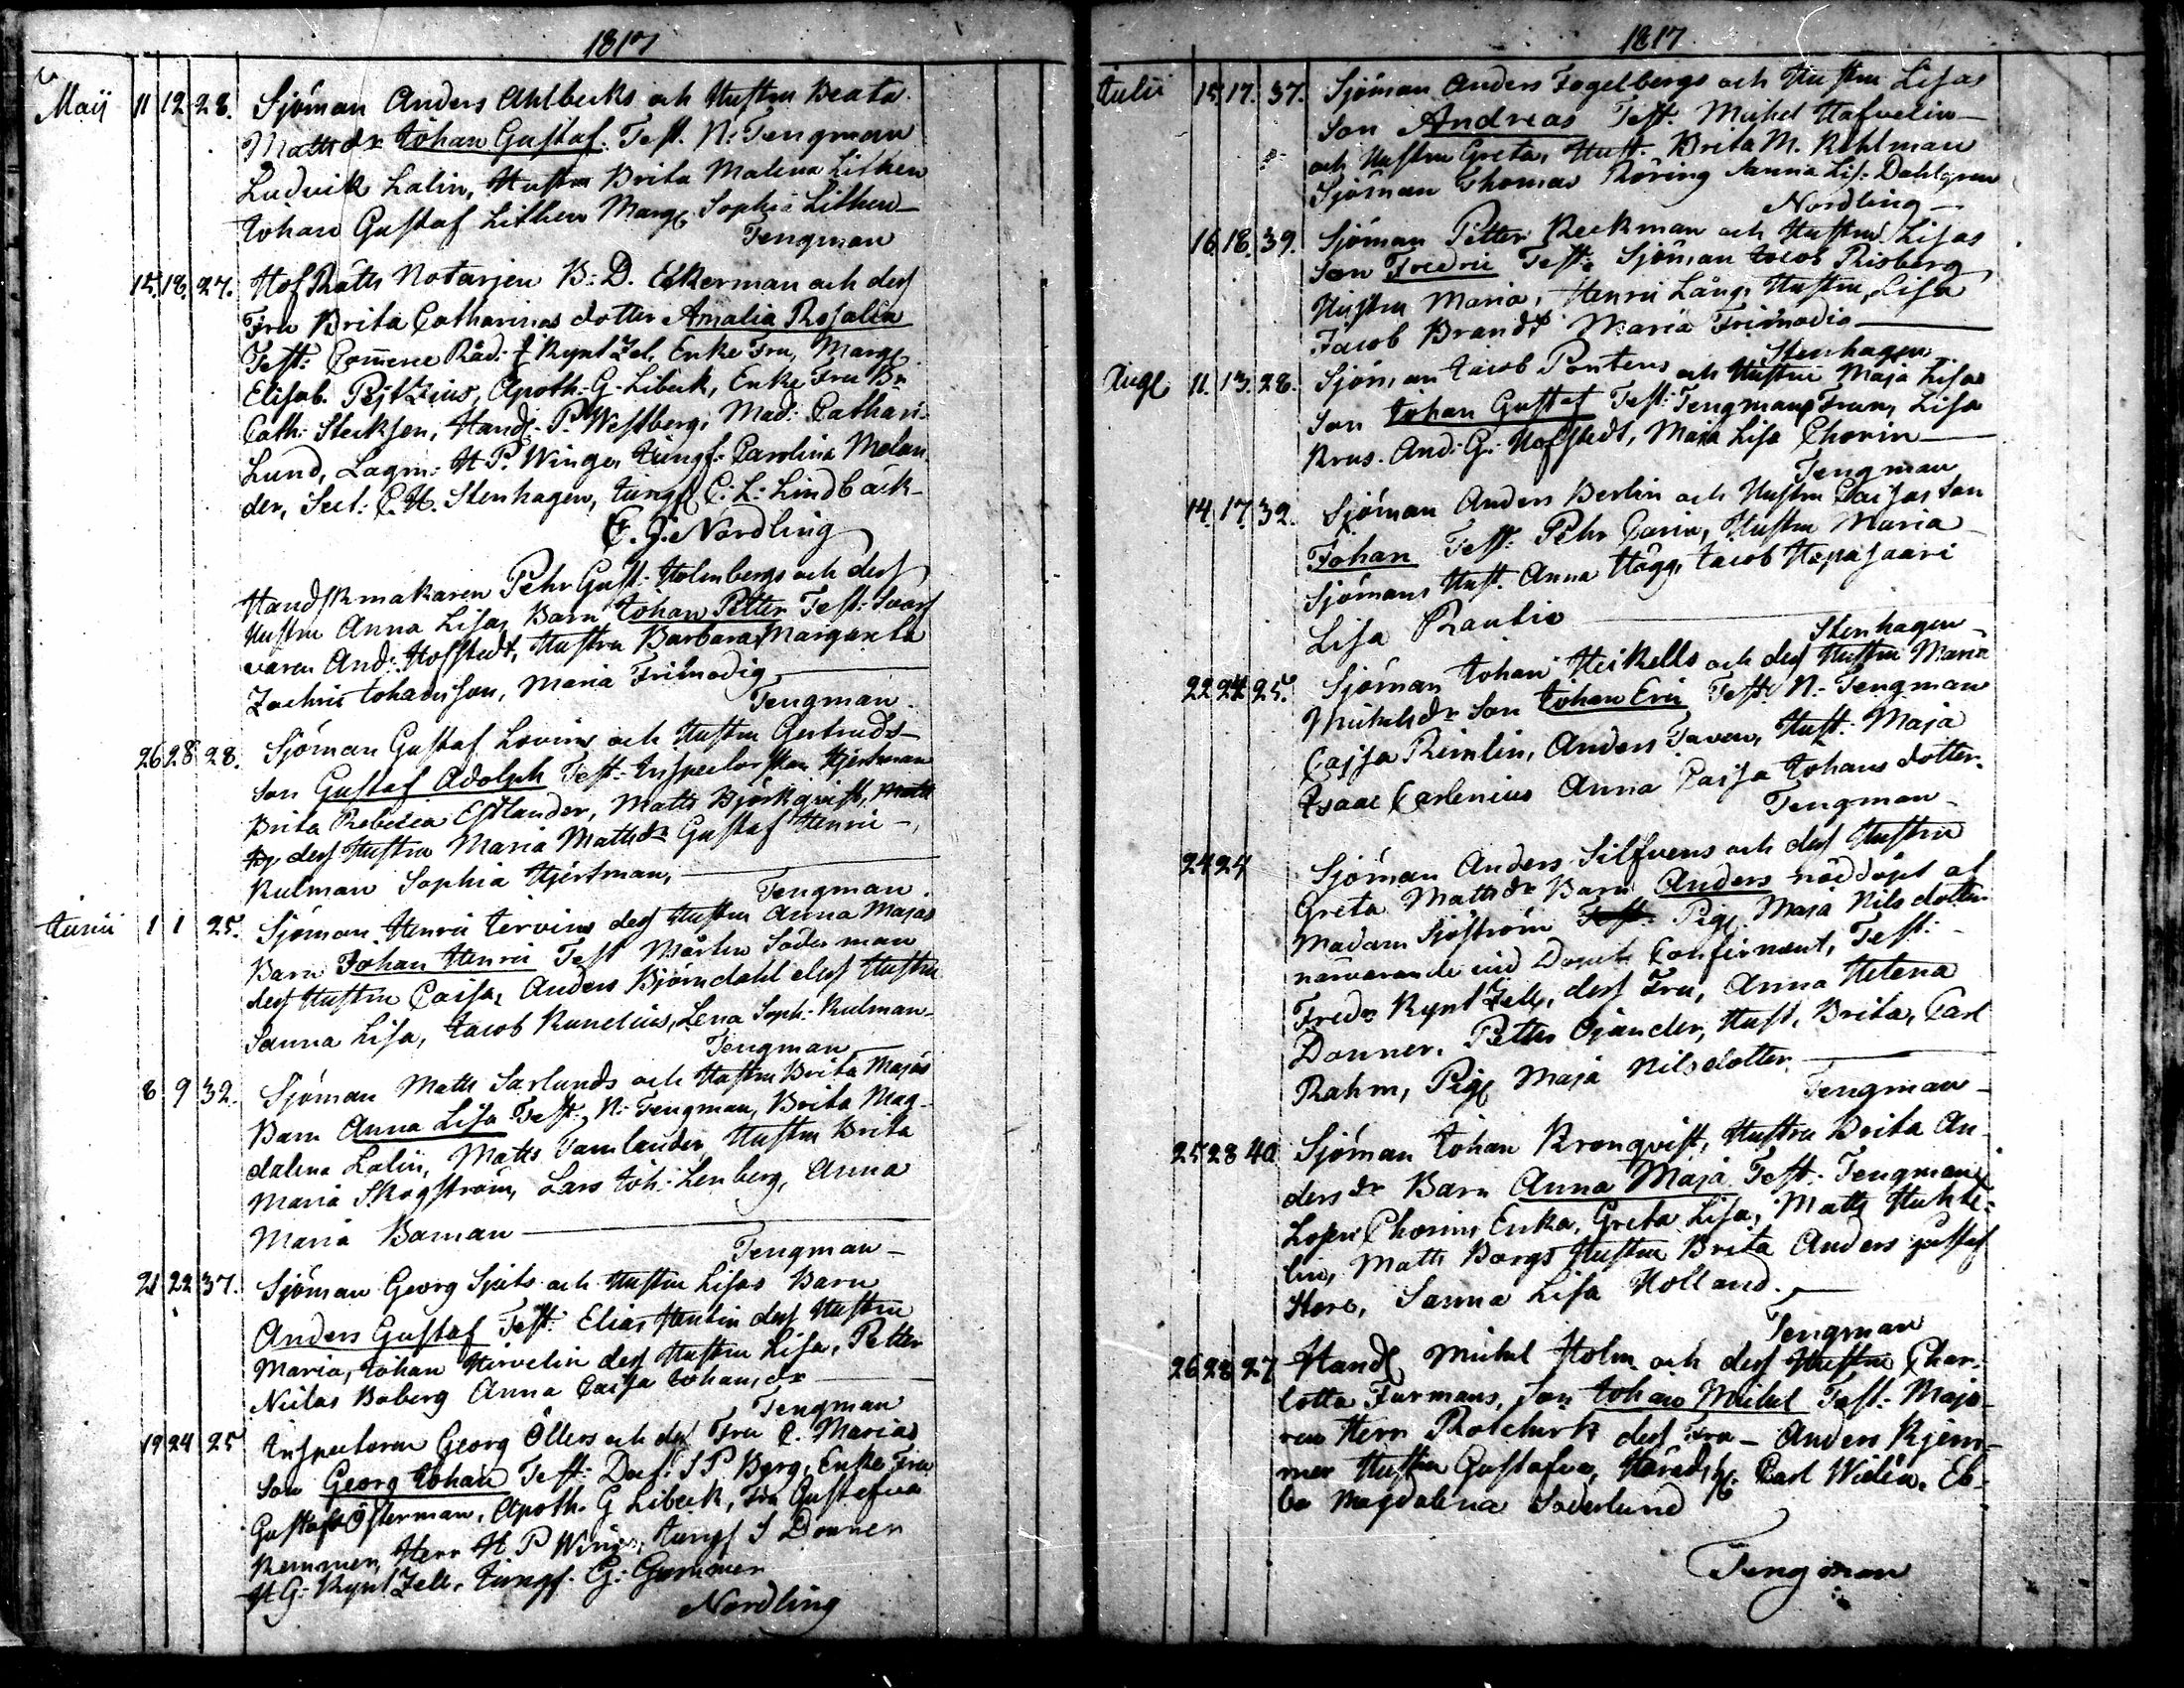 1817
Maij 11 12 28. Sjöman Anders Ahlbecks och Hustru Beata
Mattsdr Johan Gustaf. Test. N: Tengman
Ludvik Lalin, Hustru Brita Malena Lithen
Johan Gustaf Lithen Marg Sophia Lithen
Tengman
15. 18. 27. Hof Rätts Notarjen B: D. Ekerman och dess
Fru Brita Catharinas dotter Amalia Rosalia
Test: Com̄erce Råd: f KyntZel, Enke Fru, Marg
Elisab. Apoth: G. Libeck, Enke Fru Br.
Cath: Stecksen, Handl. P. Westberg, Mad: Cathari
Lund, Lagm: H. P. Winge, Jungf: Carolina Melan
der, Sect: C. H. Stenhagen, Jungf C: L: Lindbäck
E. J. Nordling
Handskmakaren Pehr Gust: Holmbergs och dess
Hustru Anna Lisas Barn Johan Petter Test: Svarf
varen And: Hofstedt, Hustru Barbara Margareta
Zachris Johansson, Maria Frimodig
Tengman
26 28 28. Sjöman Gustaf Lovins och Hustru Gertruds
Son Gustaf Adolph Test: Inspectorskan Hjertman
Brita Rebecca Estlander, Matts Björkqvist, Matts
dess Hustru Maria Mattsdr Gustaf Henric
Kulman Sophia Hjertman,
Tengman
Junii 1 1 25. Sjöman Henric Jervins dess Hustru Anna Majas
Barn Johan Henric Test Mårten Söderman
dess Hustru Caisa, Anders Björndahl dess Hustru
Sanna Lisa, Jacob Kunelius, Lena Soph: Kulman
Tengman
8 9 32. Sjöman Matts Sarlunds och Hustru Brita Majas
Barn Anna Lisa Test: N: Tengman, Brita Mag-
dalena Lalin, Matts Tamlander, Hustru Brita
Maria Skogström, Lars Joh: Lenberg, Anna
Maria Baman
Tengman
21 22 37. Sjöman Georg Sjuls och Hustru Lisas Barn
Anders Gustaf Test: Elias Hentin dess Hustru
Maria, Johan Hirvelin dess Hustru Lisa, Petter
Niclas Boberg Anna Caisa Johansdr
Tengman
19 24 25 Inspectoren Georg Öllers och dess Fru C. Marias
Son Georg Johan Test: Doct: J P Berg, Enke Fru
Gustafva Österman, Apoth. G Libeck, Fru Gustafva
Remmer, Herr H P Winge, Jungf S Donner
H G: KyntZell, Jungf. G: Gummer
Nordling
1817
Julii 15 17. 37. Sjöman Anders Fogelbergs och Hustru Lisas
Son Andreas Test: Michel Hafvelin
och Hustru Greta, Hust. Brita M. Kihlman
Sjöman Thomas Röring Anna Lis: Dahlgren
Nordling
16 18 39. Sjöman Petter Reckman och Hustru Lisas
Son Fredric Test: Sjöman Jacob Risberg
Hustru Maria, Henric Lång, Hustru Lisa
Jacob Brandt Maria Frimodig
Stenhagen
Augt 11. 13. 28. Sjöman Jacob Pontens och Hustru Maja Lisas
Son Johan Gustaf Test: Tengmans Frun, Lisa
Krus. And: G: Hofstedt, Maja Lisa Chorin
Tengman
14. 17. 32. Sjöman Anders Berlin och Hustru Caisas Son
Johan Test: Pehr Carin, Hustru Maria
Sjömans Hust. Anna Hägg, Jacob Hepasaari
Lisa Rautio
Stenhagen
22 24 25. Sjöman Johan Heikells och dess Hustru Maria
Michelsdr Son Johan Eric Test: N: Tengman
Cajsa Rimlin, Anders Taven, Hust: Maja
Isaac Carlenius Anna Caisa Johansdotter
Tengman
24 24 Sjöman Anders Silfvens och dess Hustru
Greta Mattsdr Barn Anders nöddöpt af
Madam Sjöström Test: Pig. Maja Nilsdotter
närvarande vid Dopets Confirment, Test:
Fredr KyntZell, dess Fru, Anna Helena
Donner. Petter Ojander, Hust. Brita, Carl
Rahm, Pig Maja Nilsdotter
Tengman
25 28 40 Sjöman Johan Kronqvist, Hustru Brita An-
dersdr Barn Anna Maja Test: Tengman,
Chorins Enka, Greta Lisa, Matts Huhte-
lin, Matts Borgs Hustru Brita Anders Gustaf
Hare, Sanna Lisa Holland.
Tengman
26 28 27 Handl Michel Holm och dess Hustru Char-
lotta Furmans, Son Johan Michel Test: Majo-
ren Herr Rotchirk dess Fru - Anders Kjem-
mer Hustru Gustafva, Häredsh: Carl Widén. Eb-
ba Magdalena Söderlund
Tengman